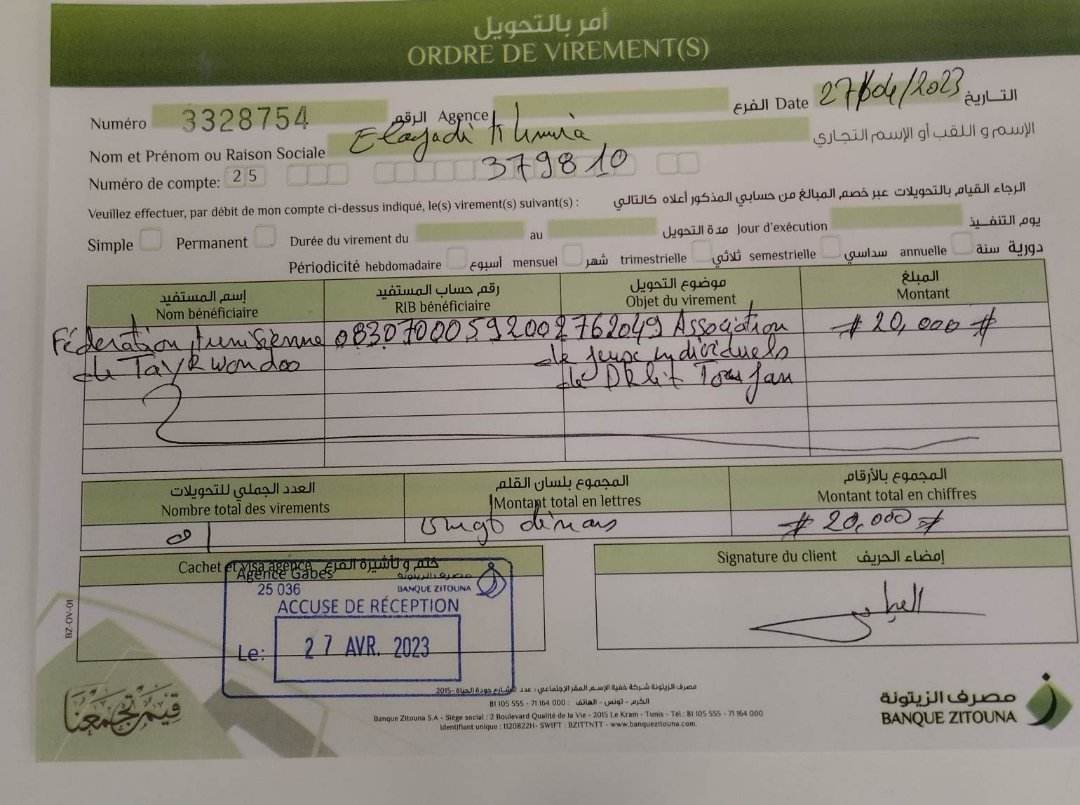 أمر بالتحويل
ORDRE DE VIREMENT(S)
Numéro 3328754 الرقم Agence الفرع Date 27/04/2023 التاريخ
Nom et Prénom ou Raison Sociale Elayadi الإسم و اللقب أو الإسم التجاري
Numéro de compte: 25 379810
Veuillez effectuer, par débit de mon compte ci-dessus indiqué, le(s) virement(s) suivant(s) : الرجاء القيام بالتحويلات عبر خصم المبالغ من حسابي المذكور أعلاه كالتالي
Simple Permanent Durée du virement du au مدة التحويل Jour d'exécution يوم التنفيذ
Périodicité hebdomadaire أسبوع mensuel شهر trimestrielle ثلاثي semestrielle سداسي annuelle سنة دورية
إسم المستفيد رقم حساب المستفيد موضوع التحويل المبلغ
Nom bénéficiaire RIB bénéficiaire Objet du virement Montant
Fédération tunisienne 08307000592002762049 Association # 20,000 #
de Taykwondoo de jeux individuels
de
العدد الجملي للتحويلات المجموع بلسان القلم المجموع بالأرقام
Nombre total des virements Montant total en lettres Montant total en chiffres
01 vingt dinars # 20,000 #
Cachet et visa agence ختم و تأشيرة الفرع Signature du client إمضاء الحريف
Agence Gabes مصرف الزيتونة
25 036 BANQUE ZITOUNA
ACCUSE DE RÉCEPTION
Le: 27 AVR. 2023
BZ-OV-01
قيم تجمعنا
الكرم - تونس - الهاتف : 81 105 555 - 71 164 000
Banque Zitouna S.A - Siège social : 2 Boulevard Qualité de la Vie - 2015 Le Kram - Tunis - Tél.: 81 105 555 - 71 164 000
Identifiant unique : 1120822H- SWIFT : BZITTNTT - www.banquezitouna.com
مصرف الزيتونة
BANQUE ZITOUNA